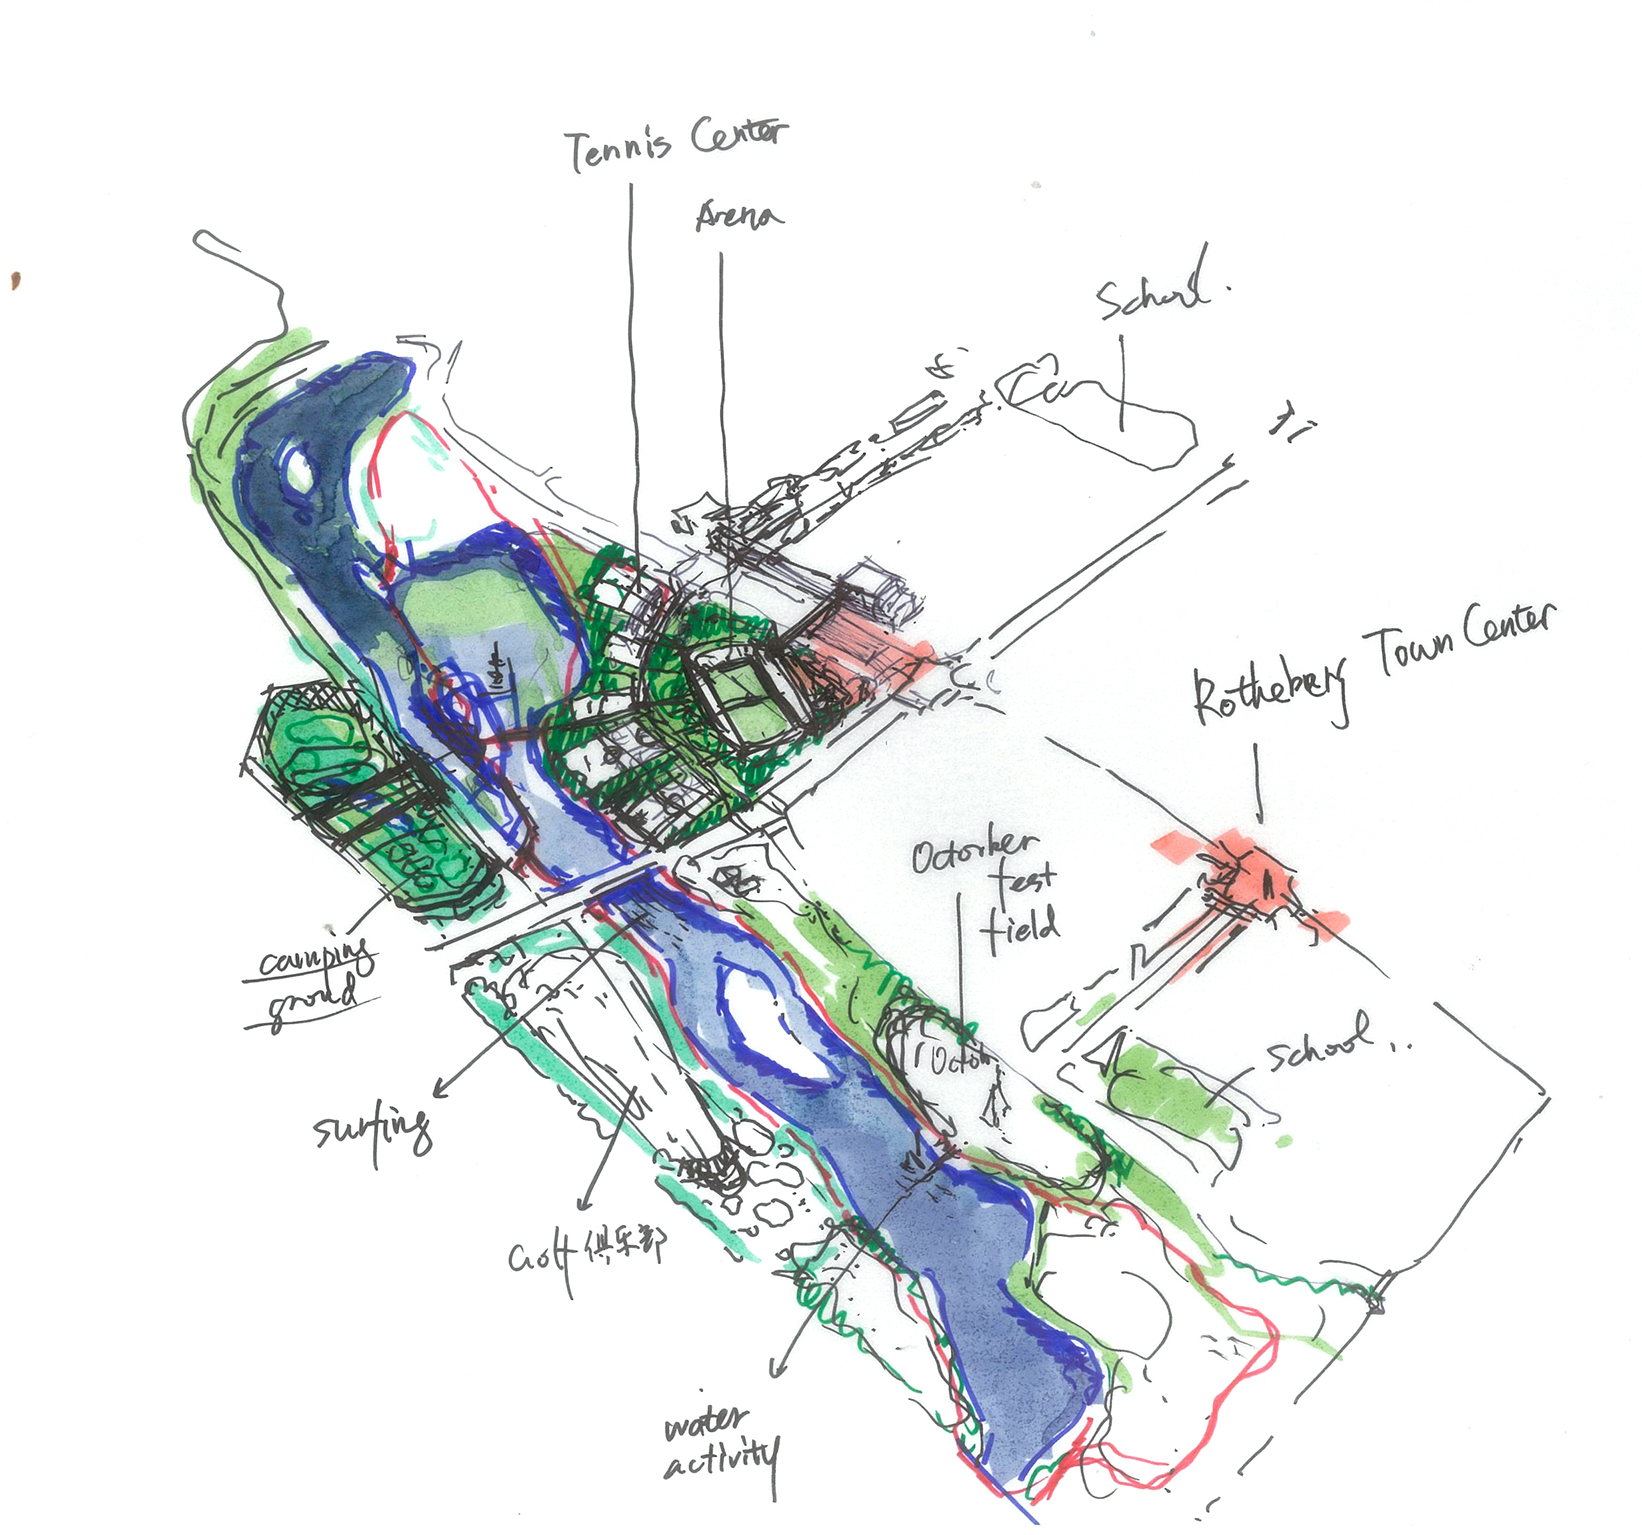 Tennis Center
Arena
School.
Rotheberg Town Center
Octorber
fest
field
Octob
camping
ground
school..
surfing
Golf 俱乐部
water
activity